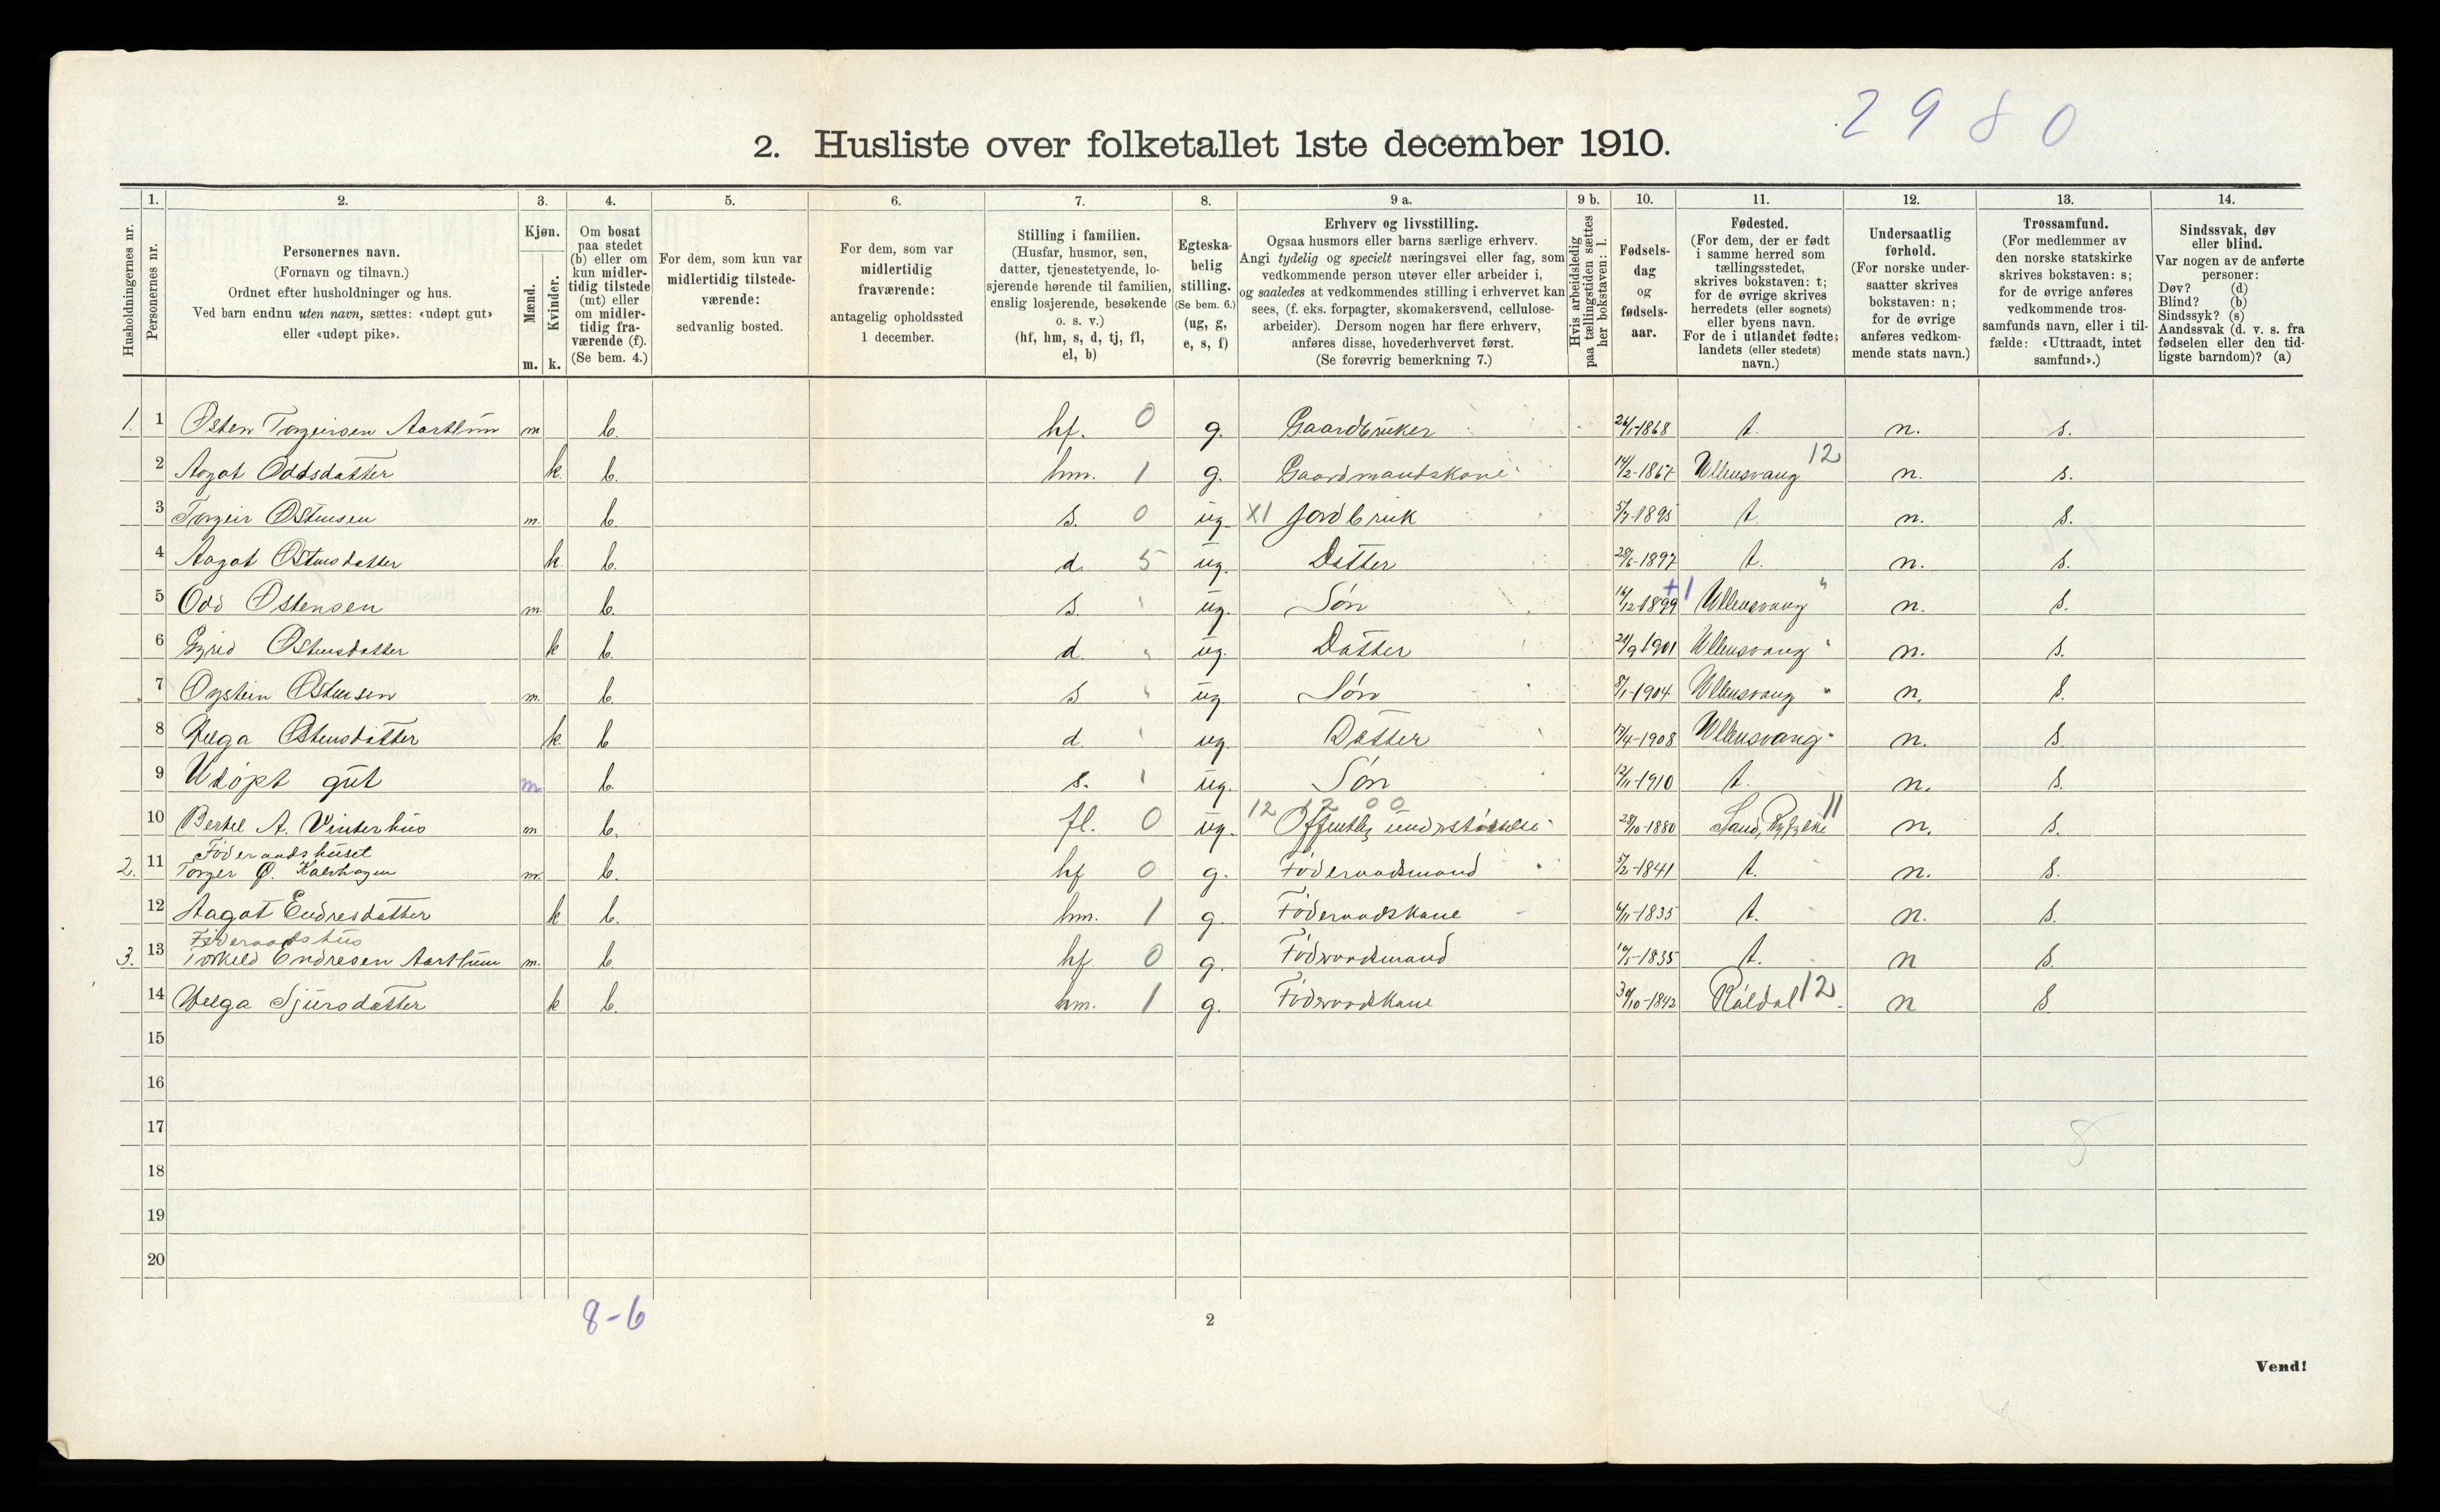 2980
2. Husliste over folketallet 1ste december 1910.
Husholdningernes nr.
1.
Personernes nr.
2.
Personernes navn.
(Fornavn og tilnavn.)
Ordnet efter husholdninger og hus.
Ved barn endnu uten navn, sættes: «udøpt gut»
eller «udøpt pike».
3.
Kjøn.
Mænd.
Kvinder.
m. k.
4.
Om bosat
paa stedet
(b) eller om
kun midler-
tidig tilstede
(mt) eller
om midler-
tidig fra-
værende (f).
(Se bem. 4.)
5.
For dem, som kun var
midlertidig tilstede-
værende:
sedvanlig bosted.
6.
For dem, som var
midlertidig
fraværende:
antagelig opholdssted
1 december.
7.
Stilling i familien.
(Husfar, husmor, søn,
datter, tjenestetyende, lo-
sjerende hørende til familien,
enslig losjerende, besøkende
o. s. v.)
(hf, hm, s, d, tj, fl,
el, b)
8.
Egteska-
belig
stilling.
(Se bem. 6.)
(ug, g,
e, s, f)
9 a.
Erhverv og livsstilling.
Ogsaa husmors eller barns særlige erhverv.
Angi tydelig og specielt næringsvei eller fag, som
vedkommende person utøver eller arbeider i,
og saaledes at vedkommendes stilling i erhvervet kan
sees, (f. eks. forpagter, skomakersvend, cellulose-
arbeider). Dersom nogen har flere erhverv,
anføres disse, hovederhvervet først.
(Se forøvrig bemerkning 7.)
9 b.
Hvis arbeidsledig
paa tællingstiden sættes
her bokstaven: l.
10.
Fødsels-
dag
og
fødsels-
aar.
11.
Fødested.
(For dem, der er født
i samme herred som
tællingsstedet,
skrives bokstaven: t;
for de øvrige skrives
herredets (eller sognets)
eller byens navn.
For de i utlandet fødte:
landets (eller stedets)
navn.)
12.
Undersaatlig
forhold.
(For norske under-
saatter skrives
bokstaven: n;
for de øvrige
anføres vedkom-
mende stats navn.)
13.
Trossamfund.
(For medlemmer av
den norske statskirke
skrives bokstaven: s;
for de øvrige anføres
vedkommende tros-
samfunds navn, eller i til-
fælde: «Uttraadt, intet
samfund».)
14.
Sindssvak, døv
eller blind.
Var nogen av de anførte
personer:
Døv? (d)
Blind? (b)
Sindssyk? (s)
Aandssvak (d. v. s. fra
fødselen eller den tid-
ligste barndom)? (a)
1. 1 Østen Torgeirsen Aarthun m b. hf. 0 g. Gaardbruker 26/1-1868 t. n. s.
2 Aagot Oddsdatter k. b. hm. 1 g. Gaardmandskone 14/2-1867 Ullensvang 12 n. s.
3 Torgeir Østensen m. b. s. 0 ug. X1 jordbruk 5/7-1895 t. n. s.
4 Aagot Østensdatter k. b. d. 5 ug. Datter 28/6-1897 t. n. s.
5 Odd Østensen m. b. s. " ug. Søn 16/12-1899 +1 Ullensvang " n. s.
6 Gyrid Østensdatter k b. d. " ug. Datter 21/9-1901 Ullensvang " n. s.
7 Øystein Østensen m. b. s " ug Søn 8/1-1904 Ullensvang " n. s.
8 Helga Østensdatter k. b d. " ug. Datter 17/4-1908 Ullensvang " n. s.
9 Udøpt gut m b. s. " ug. Søn 12/11-1910 t. n. s.
12 12 0 0
10 Bertel A. Vinterhus m b. fl. 0 ug. Offentlig understøttelse 28/10-1880 Sand, Ryfylke 11 n. s.
Føderaadshuset
2. 11 Torger Ø. m. b. hf 0 g. Føderaadsmand 5/2-1841 t. n. s.
12 Aagot Endresdatter k b. hm. 1 g. Føderaadskone 6/11-1835 t. n. s.
Føderaadshus
3. 13 Torkeld Endresen Aarthun m. b. hf. 0 g. Føderaadsmand 10/5-1835 t. n s.
14 Helga Sjursdatter k b. hm. 1 g. Føderaadskone 30/10-1842 Røldal 12 n s.
15
16
17
18
19
20
8-6
2
Vend!